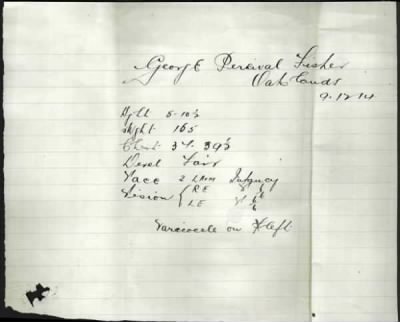 George Percival Fisher
Oaklands
9.12.14
Hght 5-10½
Wght 165
Chest 37. 39½
Devel Fair
Vacc 2 LArm Infancy
Vision { RE 6/6
LE 6/6
Varicocele on left